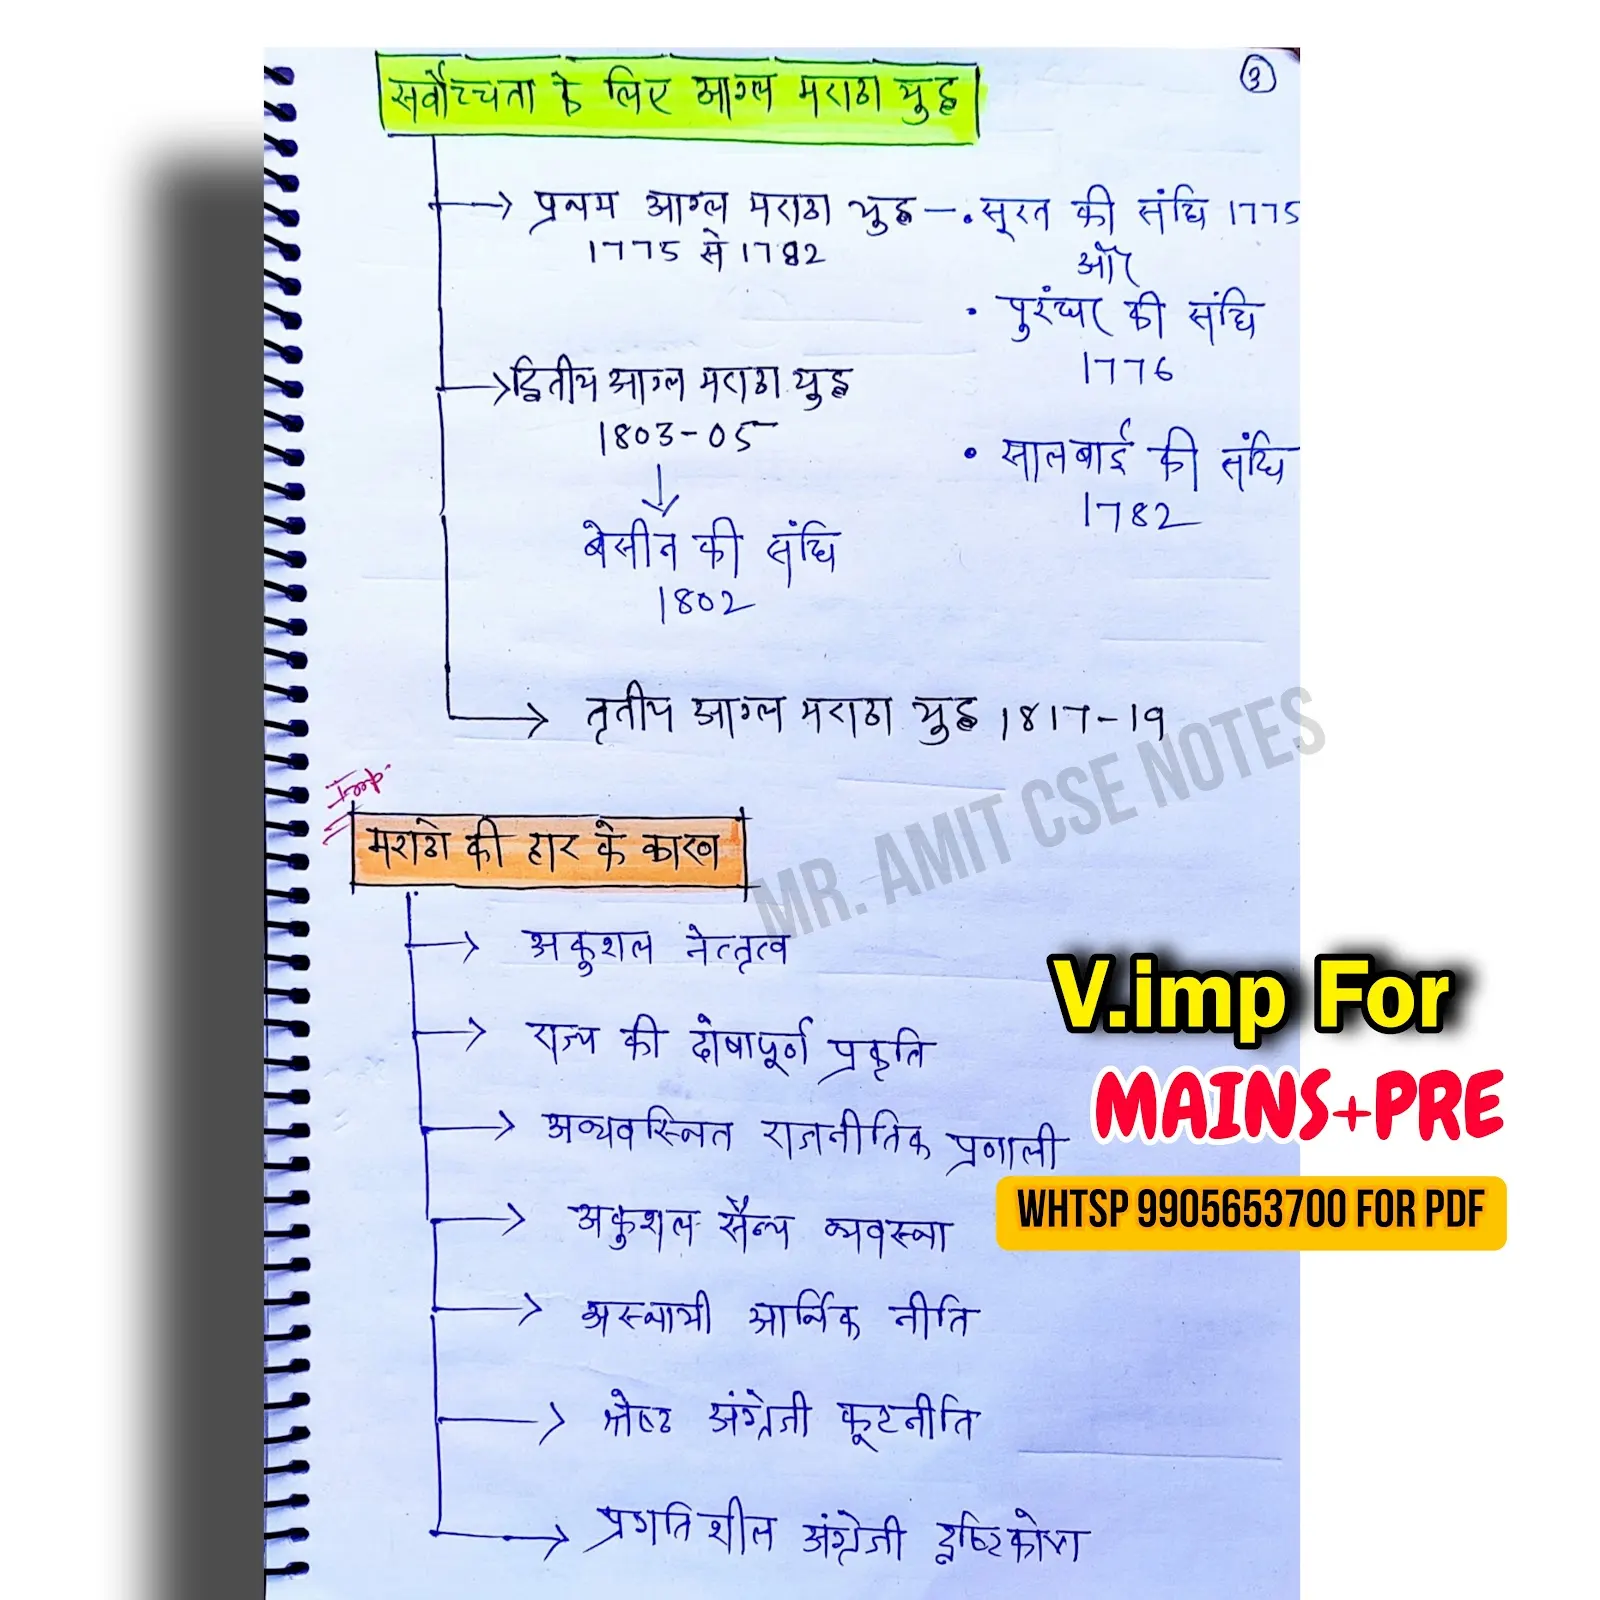 सर्वोच्चता के लिए आग्ल मराठा युद्ध
3
प्रथम आग्ल मराठा युद्ध – • सूरत की संधि 1775
1775 से 1782
और
• पुरंधर की संधि
1776
द्वितीय आग्ल मराठा युद्ध
1803-05
• सालबाई की संधि
1782
बेसीन की संधि
1802
तृतीय आग्ल मराठा युद्ध 1817-19
Imp
मराठो की हार के कारण
अकुशल नेत्तृत्व
राज्य की दोषापूर्ण प्रकृति
अव्यवस्थित राजनीतिक प्रणाली
अकुशल सैन्य व्यवस्था
अस्थायी आर्थिक नीति
श्रेष्ठ अंग्रेजी कूटनीति
प्रगतिशील अंग्रेजी दृष्टिकोण
MR. AMIT CSE NOTES
V.imp For
MAINS+PRE
WHTSP 9905653700 FOR PDF